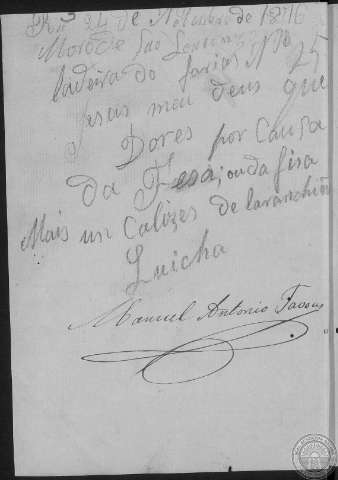 Rio 24 de Novembro de 1876
Morro de São Lourenço
ladeira do farias Nº 75
Jesus meu deus que
Dores por Cauza
da Fesa; ou da fisa
Mais un Calizes de laranchiña
Luicha
Manuel Antonio